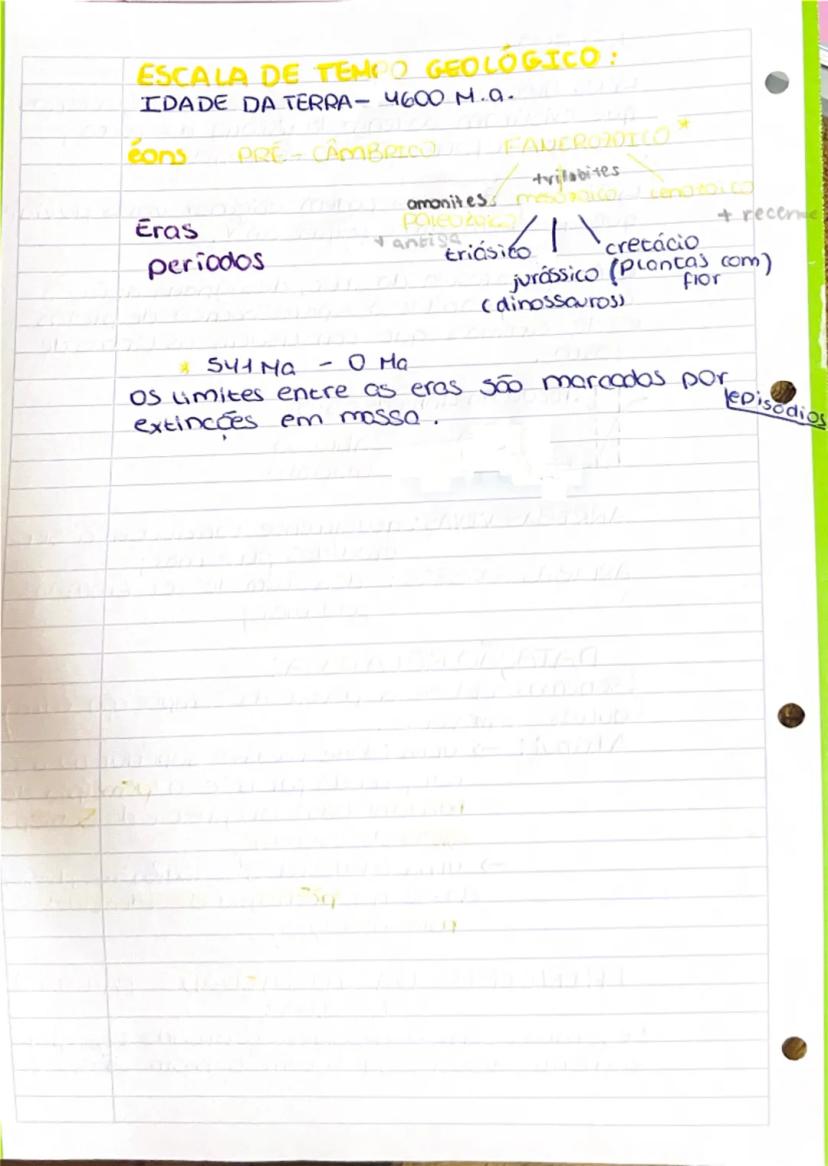 ESCALA DE TEMPO GEOLÓGICO:
IDADE DA TERRA - 4600 M.a.
éons PRÉ-CÂMBRICO FANEROZOICO *
trilobites
amonites mesozoico cenozoico
Eras PALEOZOICO + recente
+ antiga
períodos triásico cretácio
jurássico (plantas com)
flor
(dinossauros)
* 541 Ma - 0 Ma
Os limites entre as eras são marcados por episódios
extincões em massa.